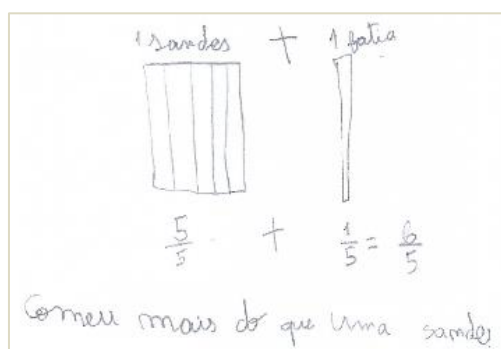 1 sandes + 1 fatia
5/5 + 1/5 = 6/5
Comeu mais do que uma sandes